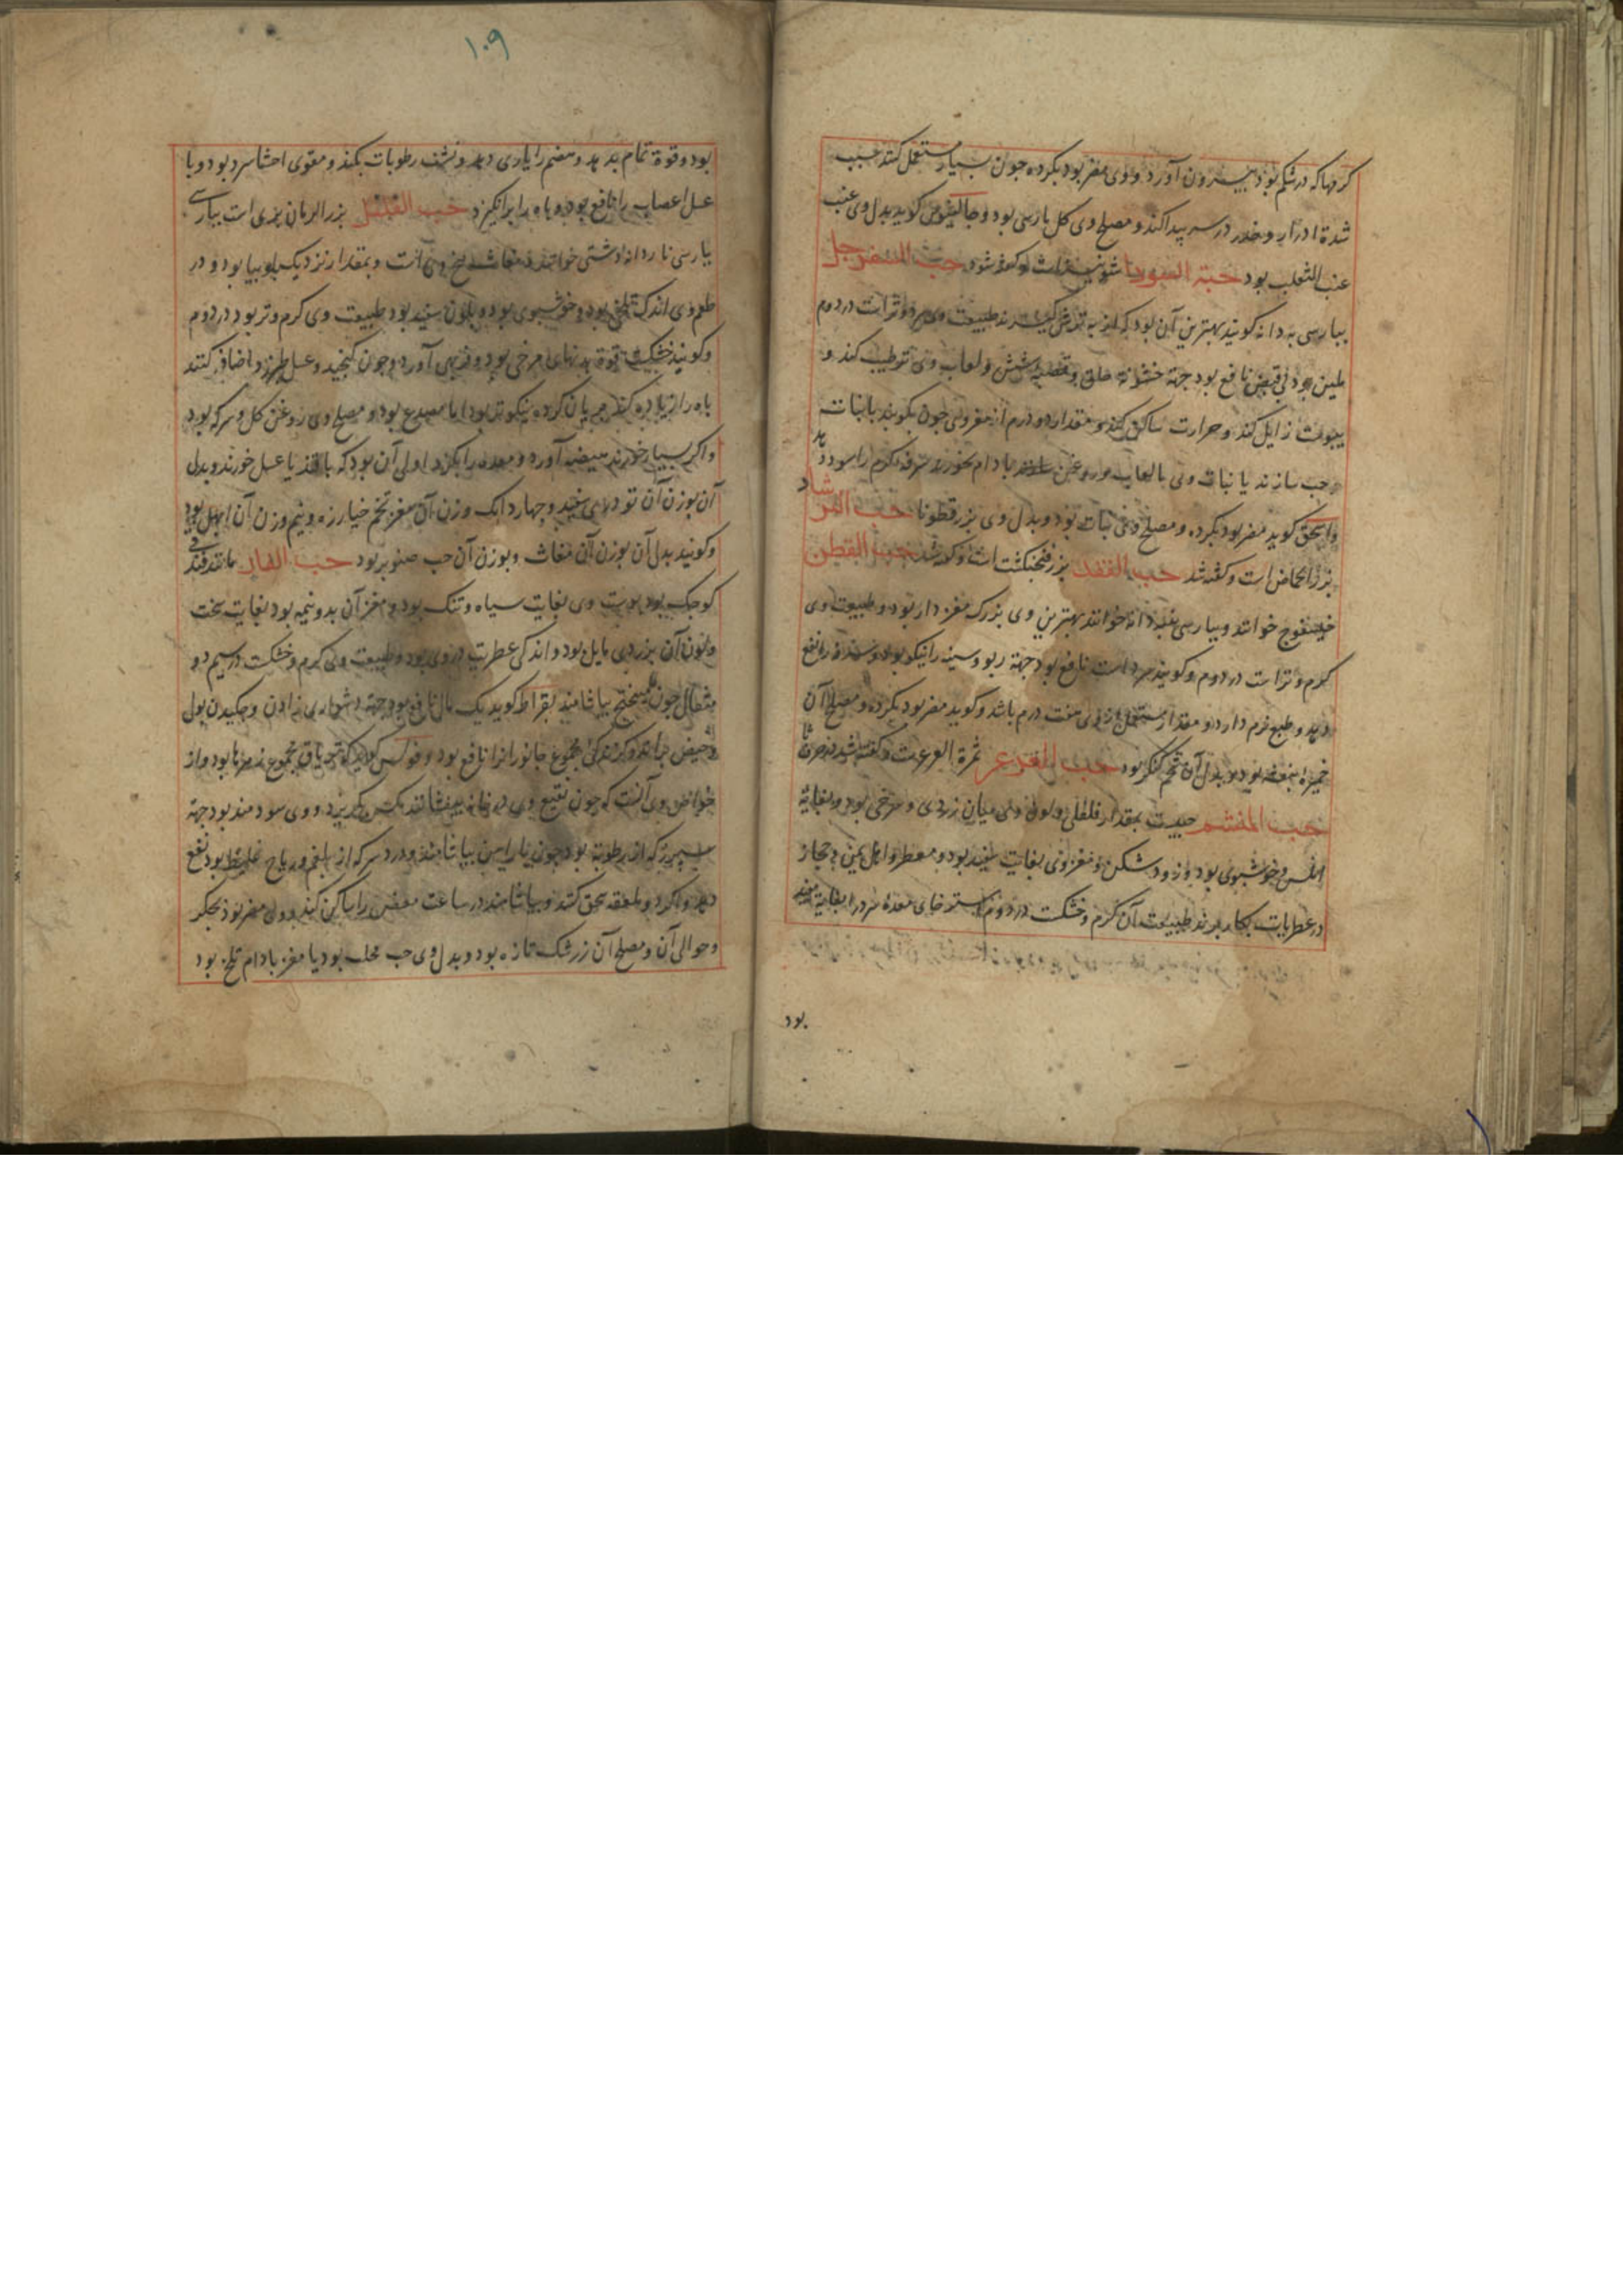 کرمها که در شکم بود بیرون آورد و وی مضر بود بگرده جون بسیار مستعمل کنند حبب
شدة ادرار و خدر در سر پیدا کند و مصلح وی کل بارسی بود و جالینوس کوید بدل وی عنب
عنب الثعلب بود حبة السودا شونیز است و کفته شود حب السفرجل
ببارسی به دانه کویند بهترین آن بود که از به طبیعت وی سرد و تر است در دوم
ملین بود بی قبض نافع بود جهة خشونة حلق و قصبه شش و لعاب وی ترطیب کند و
یبوست زایل کند و حرارت ساکن کند و مقدار دو درم از مغز وی جون بکویند با نبات
و حب سازند یا نبات وی با لعاب و روغن بادام بخورند سرفه کرم را سود دهد
و اسحق کوید مضر بود بگرده و مصلح وی نبات بود و بدل وی بزر قطونا حب الرشاد
بزر است و کفته شد حب الفقد بزر فنجنکشت است و کفته شد حب القطن
خیسفوج خوانند و ببارسی پنبه دانه خوانند بهترین وی بزرک مغز دار بود و طبیعت وی
کرم و تر است در دوم و کویند سرد است نافع بود جهة ربو و سینه را نیکو بود و سرفه را نفع
دهد و طبع نرم دارد و مقدار مستعمل از وی هفت درم باشد و کویند مضر بود بگرده و مصلح آن
خمیره بنفشه بود و بدل آن تخم کنکر بود حب العرعر ثمرة العرعرست و کفته شد در حرف ثا
حب المنشم حبیست بمقدار فلفلی و لون وی میان زردی و سرخی بود و بغایة
املس و خوشبوی بود و زود شکن و مغز وی بغایت سفید بود و معطر و اهل یمن و حجاز
در عطریات بکار برند طبیعت آن کرم و خشکست در دوم استرخای معده سرد را بغایة مفید
بود
۱۰۹
بود و قوة تمام بدهد و هضم را یاری دهد و نشف رطوبات بکند و مقوی احشا سرد بود و با
عسل اعصاب را نافع بود و باه را برانکیزد حب القلقل بزر الرمان بری است ببارسی
ببارسی نار دانه دشتی خوانند و مغاث بیخ وی است و بمقدار نزدیک بلوبیا بود و در
طعم وی اندک تلخی بود و خوشبوی بود و بلون سفید بود طبیعت وی کرم و تر بود در دوم
و کویند خشکست قوة بدنهای مرخی بود و فربهی آورد و جون کنجید و عسل طبرزد اضافه کنند
باه را زیاده کند بریان کرده نیکوتر بود اما مصدع بود و مصلح وی روغن کل و سرکه بود
و اکر بسیار خورند هیضه آورد و معده را بکزد اولی آن بود که با قند یا عسل خورند و بدل
آن بوزن آن تودری سفید و جهار دانک وزن آن مغز تخم خیارزه و نیم وزن آن ابهل بود
و کویند بدل آن بوزن آن مغاث و بوزن آن حب صنوبر بود حب الغار مانند فندقی
کوجک بود پوست وی بغایت سیاه و تنک بود و مغز آن بدو نیمه بود بغایت سخت
و لون آن بزردی مایل بود و اندکی عطریت در وی بود و طبیعت وی کرم و خشکست در سیم دو
مثقال جون با میبختج بیاشامند بقراط کوید یک مثقال نافع بود جهة دشواری زادن و جکیدن بول
و حیض براند و کزندکی مجموع جانوران را نافع بود و فولس کوید که تریاق مجموع زهرها بود و از
خواص وی آنست که جون نقیع وی در خانه بیفشانند مکس بکریزد و وی سودمند بود جهة
سپرز که از رطوبة بود جون با بیاشامند و درد سر که از بلغم و ریاح غلیظ بود نفع
دهد و اکر دو ملعقه سحق کنند و بیاشامند در ساعت مغص را ساکن کند و وی مضر بود بجکر
و حوالی آن و مصلح آن زرشک تازه بود و بدل وی حب محلب بود یا مغز بادام تلخ بود